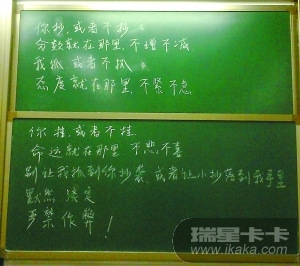 你抄,或者不抄。
分数就在那里,不增不减
我抓 或者不抓
态度就在那里,不紧不急
你挂,或者不挂
命运就在那里 不悲,不喜
别让我抓到你抄袭,或者让小抄落到我手里
默然 淡定
严禁作弊!
瑞星卡卡
www.ikaka.com